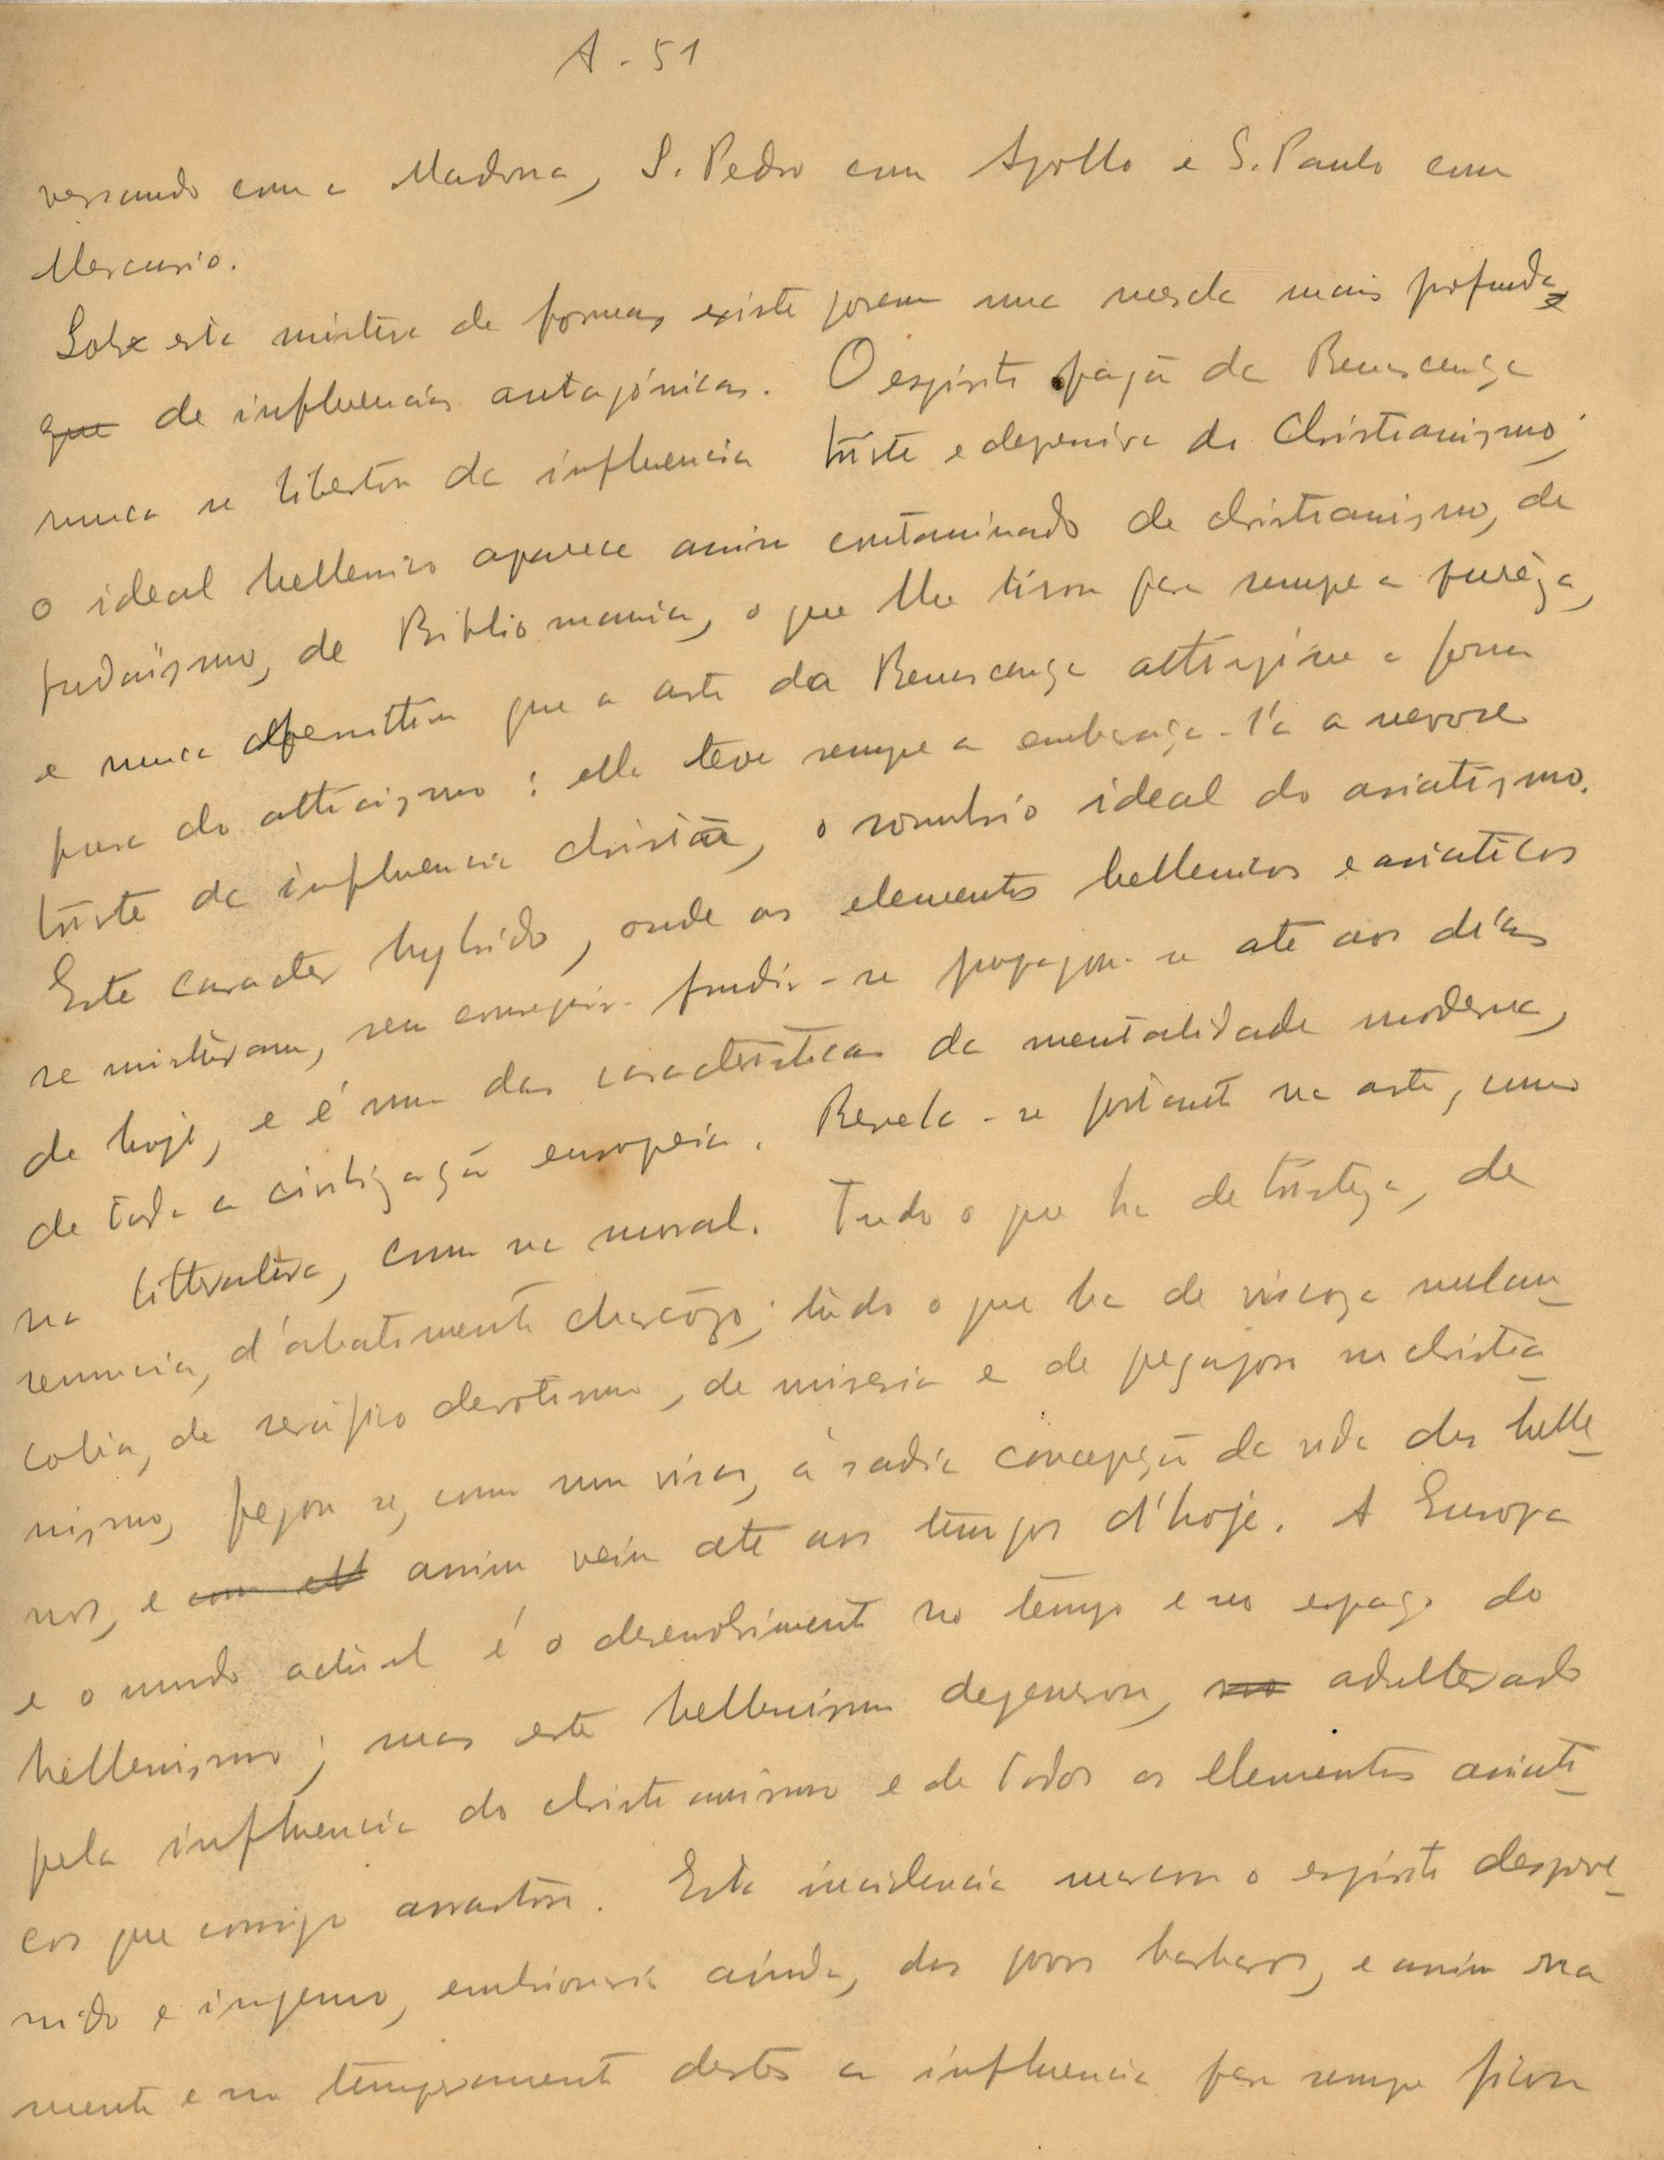 A - 51
versando com a Madona, S. Pedro com Apollo e S. Paulo com
Mercurio.
Sobre esta mistura de formas existe porem uma mescla mais profunda
que de influencias antagónicas. O espirito pagão da Renascença
nunca se libertou da influencia triste e depressiva do Christianismo;
o ideal hellenico aparece assim contaminado de christianismo, de
judaïsmo, de Bibliomania, o que lhe tirou para sempre a purêza,
e nunca permittiu que a arte da Renascença attingisse a forma
pura do atticismo: ella teve sempre a embaraça-l'a a nevrose
triste da influencia christã, o sombrio ideal do asiatismo.
Este caracter hybrido, onde os elementos hellenicos e asiaticos
se misturam, sem conseguir fundir-se propagou-se até aos dias
de hoje, e é uma das caracteristicas da mentalidade moderna,
de toda a civilização europeia. Revela-se portanto na arte, como
na litteratura, como na moral. Tudo o que ha de tristeza, de
renuncia, d'abatimento chascôzo; tudo o que ha de melan-
colia, de serafico devotismo, de miseria e de pegajoso no christia-
nismo, pegou-se, como um visco, á sadia concepção da vida dos helle-
nos, e assim veiu até aos tempos d'hoje. A Europa
e o mundo actual é o desenvolvimento no tempo e no espaço do
hellenismo; mas este hellenismo degenerou, adulterado
pela influencia do christianismo e de todos os elementos asiati-
cos que comsigo arrastou. Esta incidencia marcou o espirito despre-
nido e ingenuo, embrionario ainda, dos povos barbaros, e assim na
mente e no temperamento destes a influencia para sempre ficou